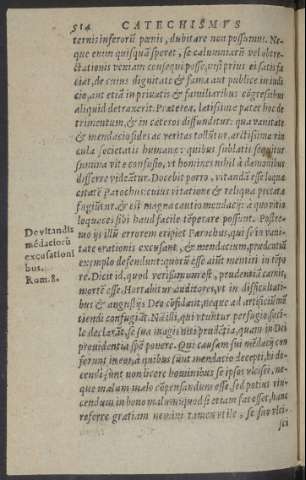 514 CATECHISMVS
ternis inferorũ pœnis, dubitare non possumus. Ne-
que enim quisquã speret, se calumniarũ vel obtre-
ctationis veniam consequi posse, nisi prius ei satisfa
ciat, de cuius dignitate & fama aut publice in iudi
cio, aut etiã in priuatis & familiaribus cõgressibus
aliquid detraxerit. Præterea, latissime patet hoc de
trimentum, & in ceteros diffunditur: qua vanitate
& mendacio fides ac veritas tolluntur, arctissima vin
cula societatis humanæ: quibus sublatis sequitur
summa vitæ confusio, vt homines nihil à dæmonibus
differre videãtur. Docebit porro, vitandã esse loqua
citatẽ Parochus: cuius vitatione & reliqua peccata
fugiũtur, & est magna cautio mendacij: à quo vitio
loquaces sibi haud facile tẽperare possunt. Postre-
mo ijs illũ errorem eripiet Parochus, qui se in vani-
tate orationis excusant, & mendacium, prudentũ
exemplo defendunt: quorũ esse aiũt mentiri in tẽpo
De vitandis
mẽdaciorũ
excusationi
bus.
Rom. 8.
re. Dicet id, quod verissimum est, prudentiã carnis,
mortẽ esse. Hortabitur auditores, vt in difficultati-
bus & angustijs Deo cõfidant, neque ad artificiũ mẽ
tiendi confugiãt. Nã illi, qui vtuntur perfugio, faci-
le declarãt, se sua magis niti prudẽtia, quam in Dei
prouidentia spẽ ponere. Qui causam sui mẽdacij con
ferunt in eos, à quibus sunt mendacio decepti, hi do-
cendi sunt non licere hominibus se ipsos vlcisci, ne-
que malum malo cõpensandum esse, sed potius vin-
cendum in bono malum: quod si etiam fas esset, hanc
referre gratiam nemini tamen vtile, se suo vlci-
sci